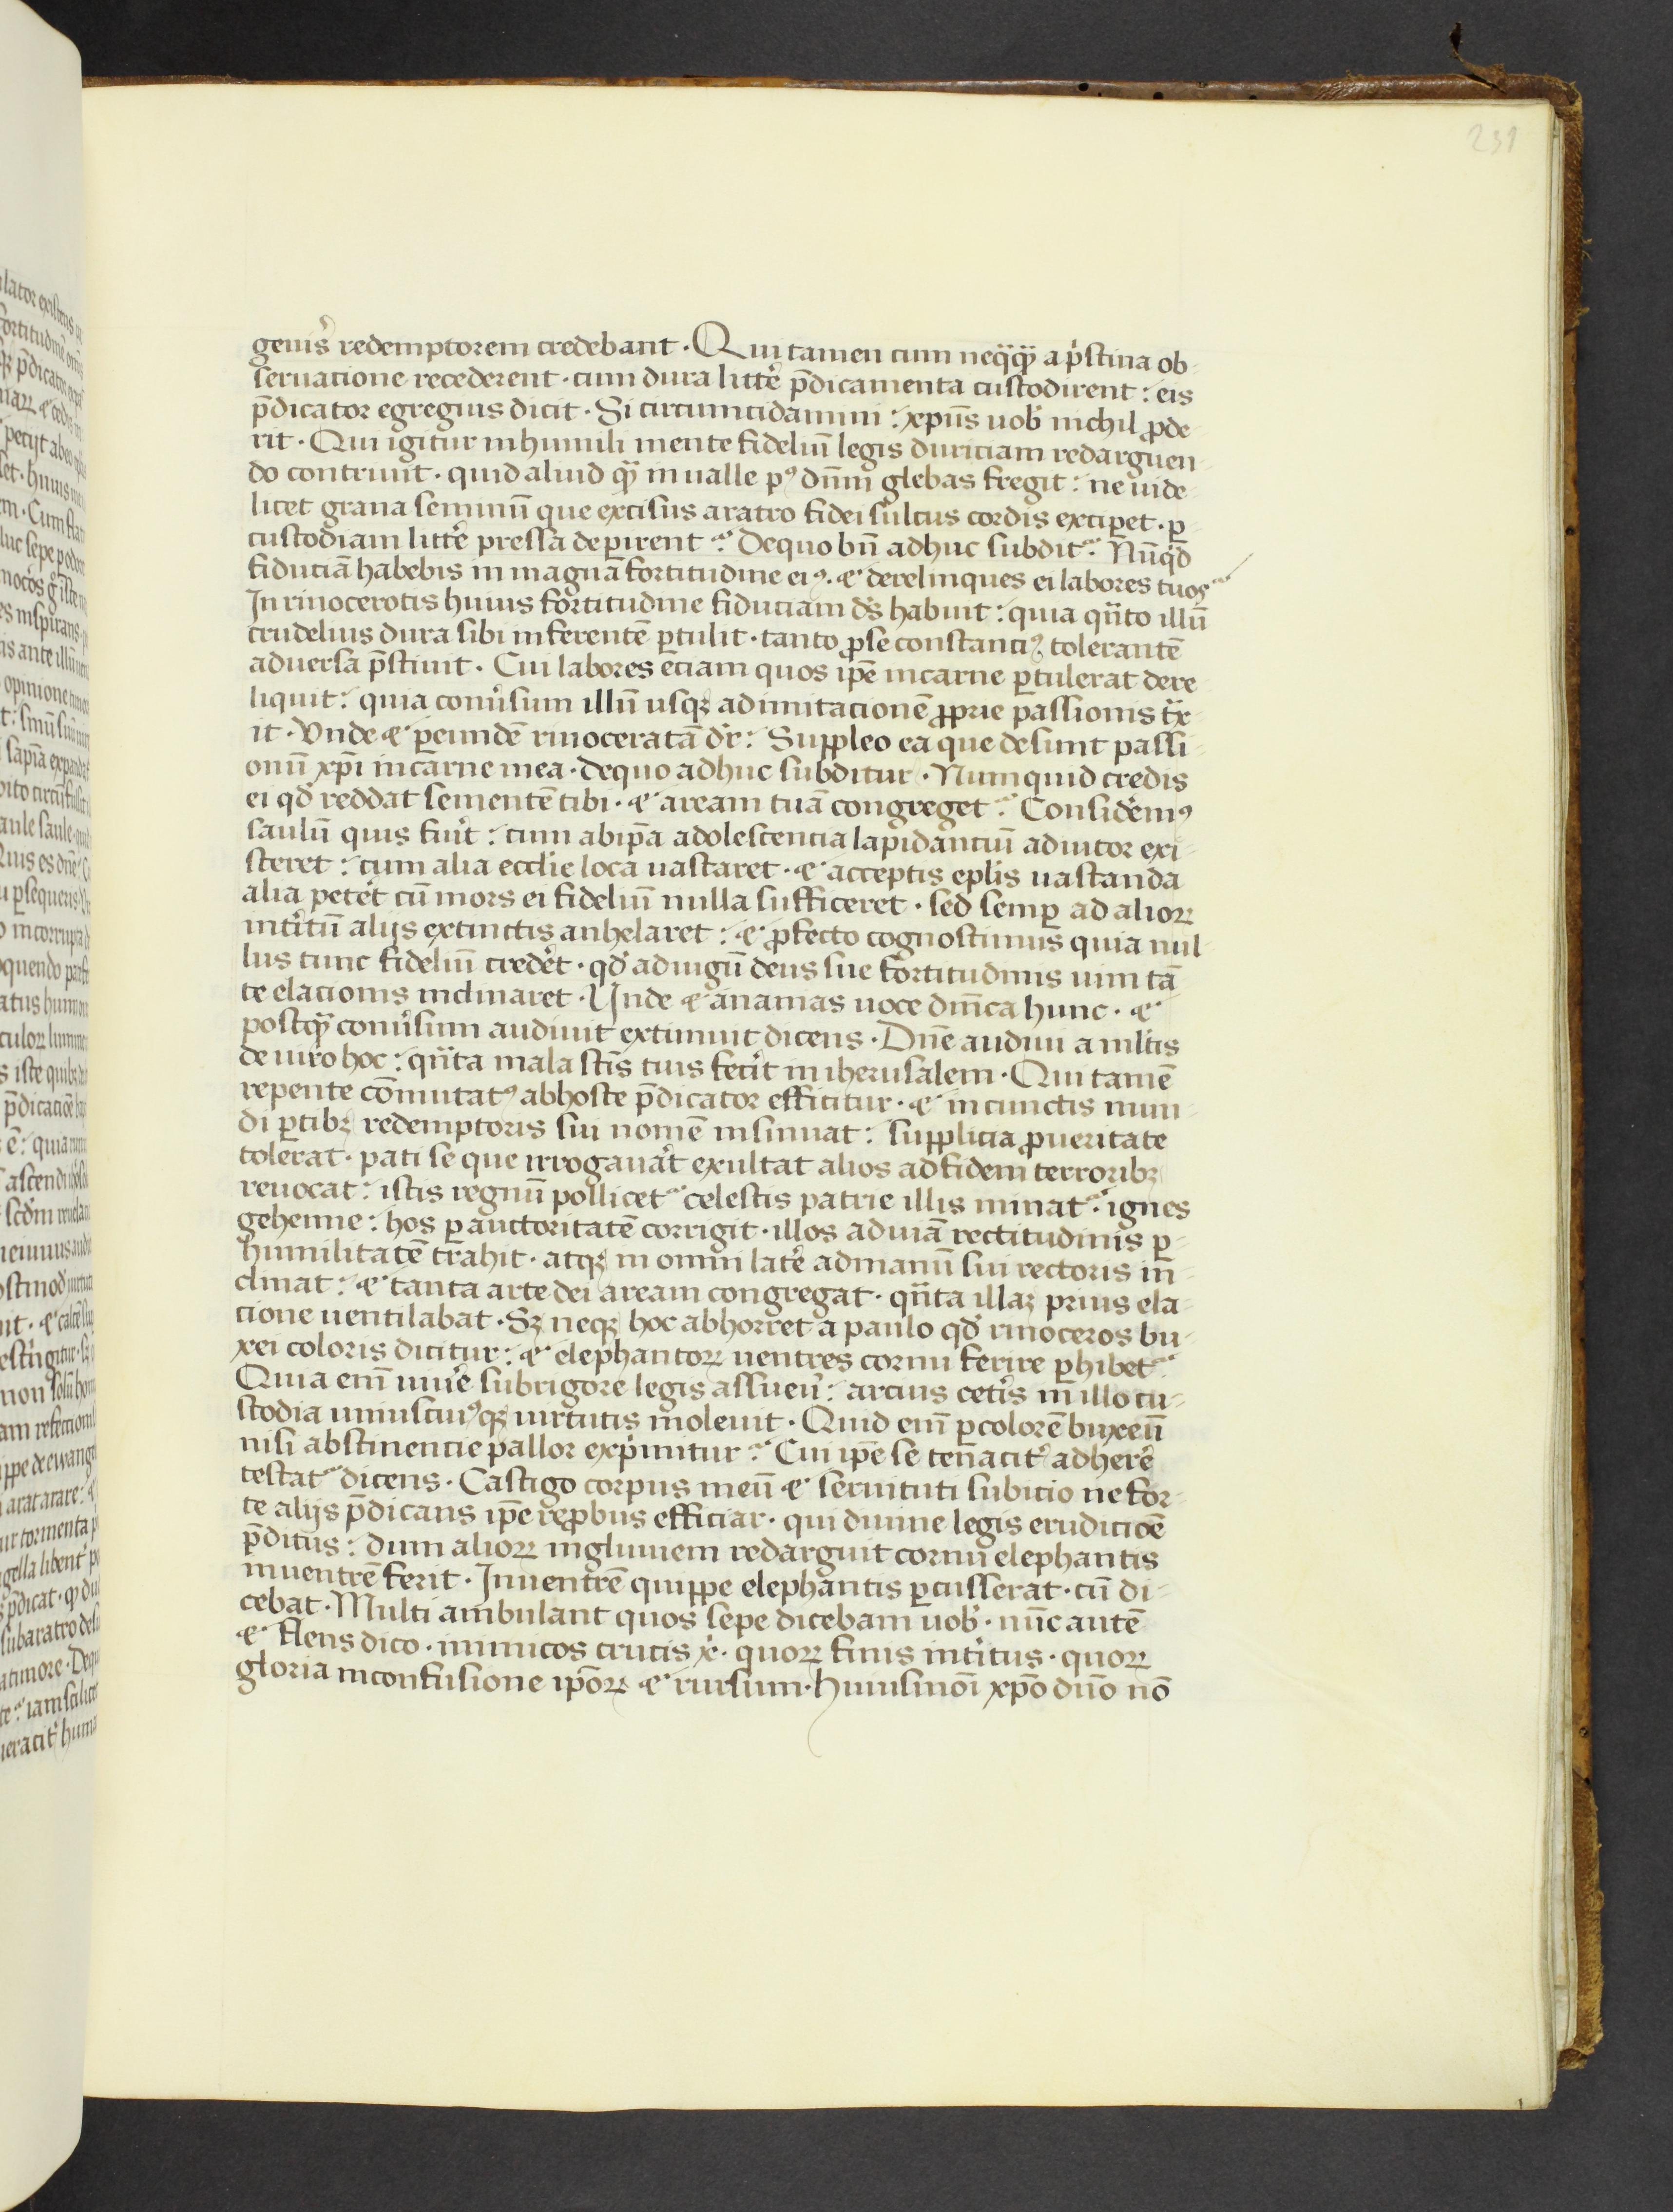 231
geniś redemptorem credebant · Qui tamen cum neqꝗ̈ȝ a p̓stina ob-
seruacione recederent · cum dura litt̓e p̄dicamenta custodirent : eis
p̄dicator egregius dicit · Si circumcidamini : xp̄us uob̓ nichil ꝓde-
rit · Qui igitur in humili mente fideliū legis duriciam redarguen-
do contriuit · quid aliud qȝ̈ in ualle pꝰ dn̄m glebas fregit : ne uide-
licet grana seminū que excisus aratro fidei sulcus cordis exciꝑet · ꝑ
custodiam litt̓e pressa deꝑirent : De quo bn̄ adhuc subdit᷑ : Nūq̓d
fiduciā habebis in magna fortitudine eiꝰ · ⁊ derelinques ei labores tuos
In rinocerotis huius fortitudine fiduciam ds̄ habuit : quia qn̈to illū
crudelius dura sibi inferentē ꝑtulit · tanto ꝓ se constanciꝰ tolerantē
aduersa p̄stiuit · Cui labores eciam quos ip̄e in carne ꝑtulerat dere-
liquit : quia conu̓sum illū usqȝ ad imitacionē ꝓprie passionis tẍ-
it · Vnde ⁊ ꝑ eundē rinoceratā dr̄ : Suppleo ea que desunt passi-
onū xp̄i in carne mea · De quo adhuc subditur · Numquid credis
ei qd̓ reddat sementē tibi · ⁊ aream tuā congreget : Consid̓emꝰ
saulū quis fuit̓ : cum ab ip̄a adolescencia lapidanciū adiutor exi-
steret : cum alia eccl̓ie loca uastaret · ⁊ acceptis epl̓is uastanda
alia pet̓et cū mors ei fideliū nulla sufficeret · sed semꝑ ad alioꝝ
int̓itū alijs extinctis anhelaret : ⁊ ꝓfecto cognoscimus quia nul-
lus tunc fideliū cred̓et · qd̓ ad iugū deus sue fortitudinis uim tā-
te elacionis inclinaret · Unde ⁊ ananias uoce dn̄ica hunc · ⁊
postqȝ̈ conu̓sum audiuit extimuit dicens · Dn̄e audiui a ml̓tis
de uiro hoc : qn̈ta mala sc̄is tuis fecit̓ in iherusalem · Qui tamē
repente cōmutatꝰ ab hoste p̄dicator efficitur · ⁊ in cunctis mun-
di ꝑtibȝ redemptoris sui nomē insinuat : supplicia ꝓ ueritate
tolerat · pati se que irrogaua̓t exultat alios ad fidem terroribȝ
reuocat : istis regnū pollicet᷑ celestis patrie illis minat᷑ · ignes
gehenne : hos ꝑ auctoritatē corrigit · illos ad uiā rectitudinis ꝑ
humilitatē trahit · atqȝ in omni lat̓e ad manū sui rectoris in-
clinat : ⁊ tanta arte dei aream congregat · qn̈ta illaȝ prius ela-
cione uentilabat · Sȝ neqȝ hoc abhorret a paulo qd̓ rinoceros bu-
xei coloris dicitur : ⁊ elephantoꝝ uentres cornu ferire ꝑhibet᷑
Quia eni᷑ uiu̓e sub rigore legis assueu̓ : arcius cet̓is in illo cu-
stodia uniuscuiꝰqȝ uirtutis inoleuit · Quid eni᷑ ꝑ colorē buxeū
nisi abstinencie pallor exp̓mitur : Cui ip̄e se tenacit̓ adher̓e
testat᷑ dicens · Castigo corpus meū ⁊ seruituti subicio ne for-
te alijs p̄dicans ip̄e reꝓbus efficiar · qui diuine legis erudiciōe
p̄ditus : dum alioꝝ ingluuiem redarguit cornu elephantis
in uentrē ferit · In uentrē quippe elephantis ꝑcusserat · cū di-
cebat · Multi ambulant quos sepe dicebam uob̓ · nūc autē
⁊ flens dico · inimicos crucis x̓ · quoꝝ finis int̓itus · quoꝝ
gloria in confusione ip̄oꝝ ⁊ rursum · Huiusmōi xp̄o dn̄o nō